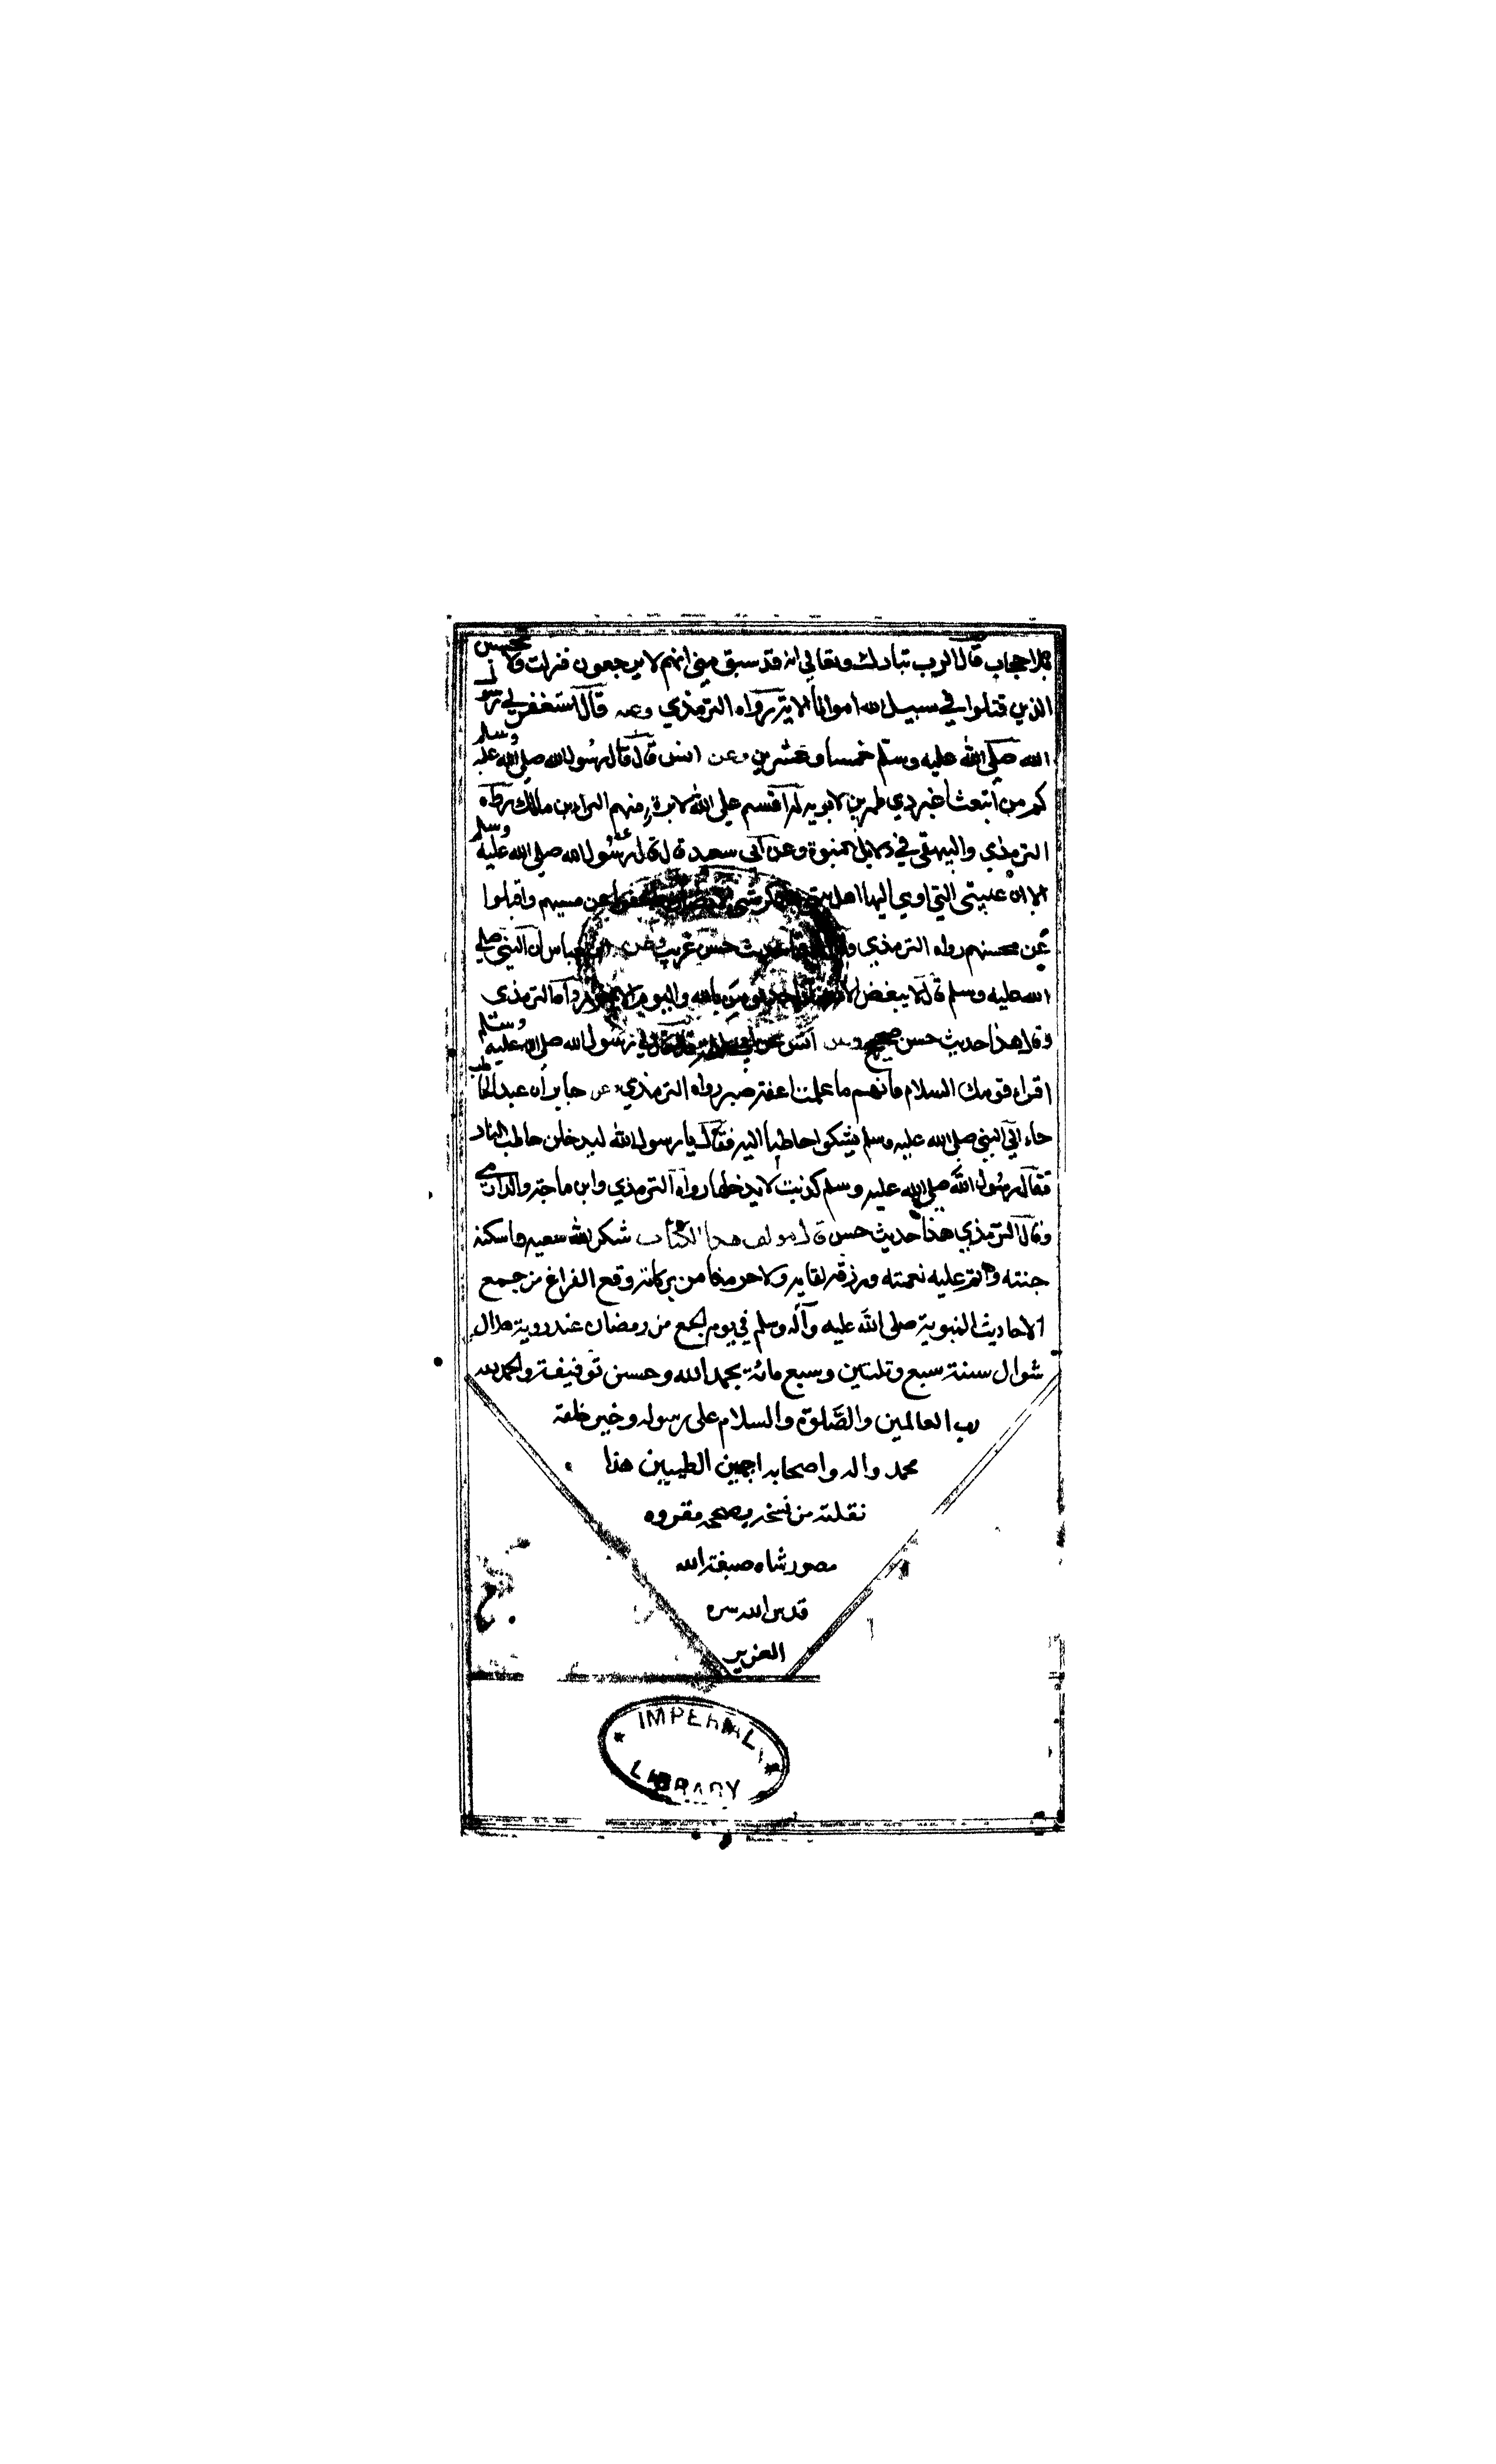 بلا حجاب قال الرب تبارك وتعالى انه قد سبق مني انهم لا يرجعون فنزلت ولا تحسبن
الذين قتلوا في سبيل الله امواتا الاية رواه الترمذي وعنه قال استغفر لي رسو
الله صلى الله عليه وسلم خمسا وعشرين وعن انس قال قال رسول الله صلى الله عليه وسلم
كم من اشعث اغبر ذي طمرين لا يوبه له لو اقسم على الله لابره منهم البراء بن مالك رواه
الترمذي والبيهقي في دلايل النبوة وعن ابي سعيد قال قال رسول الله صلى الله عليه وسلم
الا ان عيبتي التي اوي اليها اهل بيتي كرشي عن مسيهم واقبلوا
عن محسنهم رواه الترمذي حديث حسن غريب وعن ابن عباس ان النبي صلى
الله عليه وسلم قال لا يبغض بالله واليوم الاخر رواه الترمذي
وقال هذا حديث حسن صحيح وعن انس عن قال قال لي رسول الله صلى الله عليه وسلم
اقراء قومك السلام فانهم ما علمت اعفة صبر رواه الترمذي وعن جابر ان عبد الحاطب
جاء الى النبي صلى الله عليه وسلم يشكو احاطبا اليه فقال يا رسول الله ليدخلن حاطب النار
فقال رسول الله صلى الله عليه وسلم كذبت لا يدخلها رواه الترمذي وابن ماجة والدارمي
وقال الترمذي هذا حديث حسن قال مولف هذا الكتاب شكر الله سعيه واسكنه
جنته واتم عليه نعمته ورزقه لقايه ولا حرمنا من بركاته وقع الفراغ من جمع
الاحاديث النبوية صلى الله عليه وآله وسلم في يوم الجمع من رمضان عند روية هلال
شوال سنة سبع وثلثين وسبع مائة بحمد الله وحسن توفيقه والحمد لله
رب العالمين والصلوة والسلام على رسوله وخير خلقه
محمد واله واصحابه اجمعين الطيبين هذا
نقلته من نسخه صححه مقروه
شاه صبغة الله
قدس الله سره
العزيز
IMPERIAL
LIBRARY